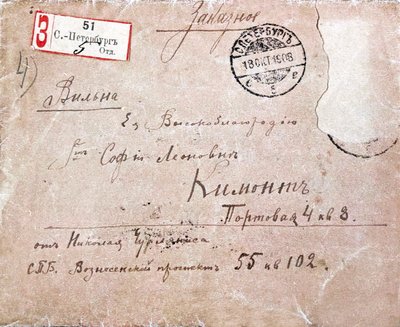 Заказное
З
51
С.-Петербургъ
5 Отд.
С.ПЕТЕРБУРГЪ
18 ОКТ. 1908
5
4)
Вильна
Ея Высокоблагородію
Софіи Леоновнѣ
Кимонтъ
Портовая 4 кв 8.
отъ Николая
СПБ. Вознесенскій проспектъ 55 кв 102.